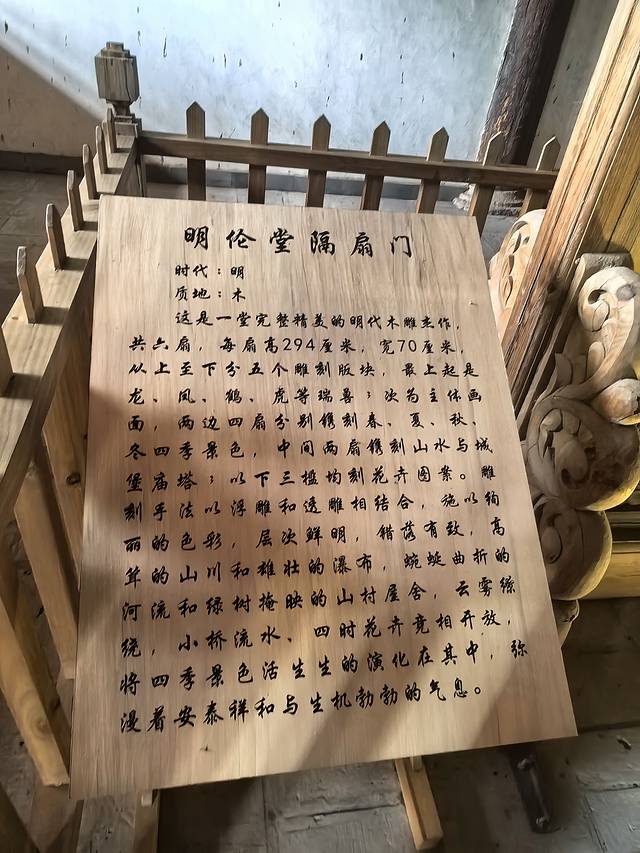 明伦堂隔扇门
时代：明
质地：木
这是一堂完整精美的明代木雕杰作，
共六扇，每扇高294厘米，宽70厘米，
从上至下分五个雕刻版块，最上起是
龙、凤、鹤、虎等瑞兽；次为主体画
面，两边四扇分别镌刻春、夏、秋、
冬四季景色，中间两扇镌刻山水与城
堡庙塔；以下三槛均刻花卉图案。雕
刻手法以浮雕和透雕相结合，施以绚
丽的色彩，层次鲜明，错落有致，高
耸的山川和雄壮的瀑布，蜿蜒曲折的
河流和绿树掩映的山村屋舍，云雾缭
绕，小桥流水、四时花卉竞相开放，
将四季景色活生生的演化在其中，弥
漫着安泰祥和与生机勃勃的气息。